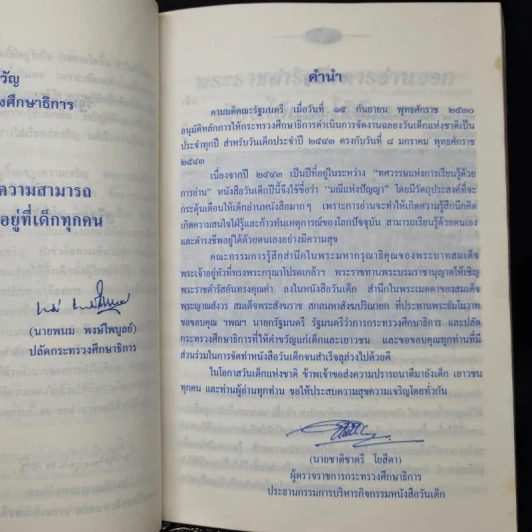 วัญ
งศึกษาธิการ
ความสามารถ
อยู่ที่เด็กทุกคน
(นายพนม พงษ์ไพบูลย์)
ปลัดกระทรวงศึกษาธิการ
คำนำ
ตามมติคณะรัฐมนตรี เมื่อวันที่ ๑๕ กันยายน พุทธศักราช ๒๕๓๐
อนุมัติหลักการให้กระทรวงศึกษาธิการดำเนินการจัดงานฉลองวันเด็กแห่งชาติเป็น
ประจำทุกปี สำหรับวันเด็กประจำปี ๒๕๔๓ ตรงกับวันที่ ๘ มกราคม พุทธศักราช
๒๕๔๓
เนื่องจากปี ๒๕๔๓ เป็นปีที่อยู่ในระหว่าง “ทศวรรษแห่งการเรียนรู้ด้วย
การอ่าน” หนังสือวันเด็กปีนี้จึงใช้ชื่อว่า “มณีแห่งปัญญา” โดยมีวัตถุประสงค์ที่จะ
กระตุ้นเตือนให้เด็กอ่านหนังสือมาก ๆ เพราะการอ่านจะทำให้เกิดความรู้สึกนึกคิด
เกิดความสนใจใฝ่รู้และก้าวทันเหตุการณ์ของโลกปัจจุบัน สามารถเรียนรู้ด้วยตนเอง
และดำรงชีพอยู่ได้ด้วยตนเองอย่างมีความสุข
คณะกรรมการรู้สึกสำนึกในพระมหากรุณาธิคุณของพระบาทสมเด็จ
พระเจ้าอยู่หัวที่ทรงพระกรุณาโปรดเกล้าฯ พระราชทานพระบรมราชานุญาตให้เชิญ
พระราชดำรัสอันทรงคุณค่า ลงในหนังสือวันเด็ก สำนึกในพระเมตตาของสมเด็จ
พระญาณสังวร สมเด็จพระสังฆราช สกลมหาสังฆปริณายก ที่ประทานพระธัมโมวาท
ขอขอบคุณ ฯพณฯ นายกรัฐมนตรี รัฐมนตรีว่าการกระทรวงศึกษาธิการ และปลัด
กระทรวงศึกษาธิการที่ให้คำขวัญแก่เด็กและเยาวชน และขอขอบคุณทุกท่านที่มี
ส่วนร่วมในการจัดทำหนังสือวันเด็กจนสำเร็จลุล่วงไปด้วยดี
ในโอกาสวันเด็กแห่งชาติ ข้าพเจ้าขอส่งความปรารถนาดีมายังเด็ก เยาวชน
ทุกคน และท่านผู้อ่านทุกท่าน ขอให้ประสบความสุขความเจริญโดยทั่วกัน
(นายชาติชาตรี โยสีดา)
ผู้ตรวจราชการกระทรวงศึกษาธิการ
ประธานกรรมการบริหารกิจกรรมหนังสือวันเด็ก